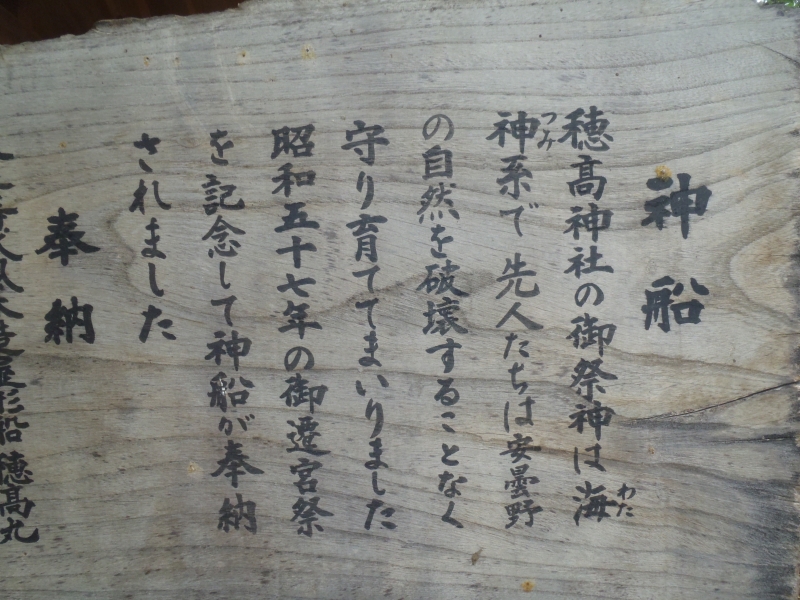 神船
穂高神社の御祭神は海
わた
神系で先人たちは安曇野
つみ
の自然を破壊することなく
守り育ててまいりました
昭和五十七年の御遷宮祭
を記念して神船が奉納
されました
奉納
形船 穂高丸